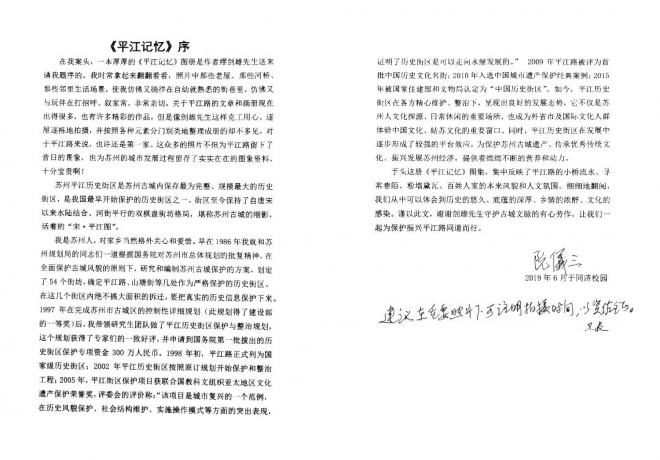 《平江记忆》序
在我案头，一本厚厚的《平江记忆》图册是作者缪剑雄先生送来
请我题序的。我时常拿起来翻翻看看，照片中那些老屋、那些河桥、
那些邻里生活场景，使我仿佛又徜徉在自幼就熟悉的街巷里，仿佛又
与玩伴在打招呼、叙家常，非常亲切。关于平江路的文章和画册现在
出得很多，也有许多精彩的作品，但是像剑雄先生这样克工用心、逐
屋逐栋地拍摄，并按照各种元素分门别类地整理成册的却不多见，对
于平江路来说，也许还是第一家。这众多的照片不但为平江路留下了
昔日的景象，也为苏州的城市发展过程留存了实实在在的图象资料，
十分宝贵啊！
苏州平江历史街区是苏州古城内保存最为完整、规模最大的历史
街区，是我国最早开始保护的历史街区之一。街区至今保持了自唐宋
以来水陆结合、河街平行的双棋盘街坊格局，堪称苏州古城的缩影，
活着的“宋·平江图”。
我是苏州人，对家乡当然格外关心和爱惜。早在 1986 年我就和苏
州规划局的同志们一道根据国务院对苏州市总体规划的批复精神，在
全面保护古城风貌的原则下，研究和编制苏州古城保护的方案，划定
了 54 个街坊，确定平江路、山塘街等几处作为严格保护的历史街区。
在这几个街区内绝不搞大面积的拆迁，要把真实的历史信息保护下来。
1997 年在完成苏州市古城区的控制性详细规划（此规划得了建设部
的一等奖）后，我带领研究生团队做了平江历史街区保护与整治规划，
这个规划获得了专家们的一致好评，并申请到国务院第一批拨出的历
史街区保护专项资金 300 万人民币。1998 年初，平江路正式列为国
家级历史街区；2002 年平江历史街区按照原订规划开始保护和整治
工程；2005 年，平江街区保护项目获联合国教科文组织亚太地区文化
遗产保护荣誉奖，评委会的评价称：“该项目是城市复兴的一个范例，
在历史风貌保护、社会结构维护、实施操作模式等方面的突出表现，
证明了历史街区是可以走向永继发展的。” 2009 年平江路被评为首
批中国历史文化名街；2010 年入选中国城市遗产保护经典案例；2015
年被国家住建部和文物局认定为“中国历史街区”。如今，平江历史
街区在各方精心维护、整治下，呈现出良好的发展态势，它不仅是苏
州人文化探源、日常休闲的重要场所，也成为外省市及国际文化人群
体验中国文化、姑苏文化的重要窗口。同时，平江历史街区在发展中
逐步形成了较强的平台效应，为保护苏州古城遗产、传承优秀传统文
化、振兴发展苏州经济，提供着绵绵不断的营养和动力。
手头这册《平江记忆》图集，集中反映了平江路的小桥流水、寻
常巷陌、粉墙黛瓦、百姓人家的本来风貌和人文氛围。细细地翻阅，
我们从中可以体会到历史的悠久、底蕴的深厚、乡情的浓醇、文化的
感染。谨以此文，谢谢剑雄先生守护古城文脉的有心劳作，让我们一
起为保护振兴平江路同道而行。
阮儀三
2019 年 6 月于同济校园
建议在重要照片下可注明拍摄时间，以实传